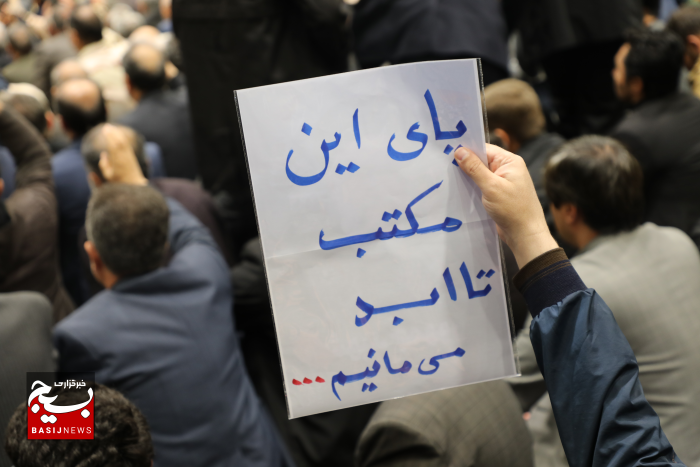 پای این
مکتب
تا ابد
می مانیم...
خبرگزاری
بسیج
BASIJNEWS